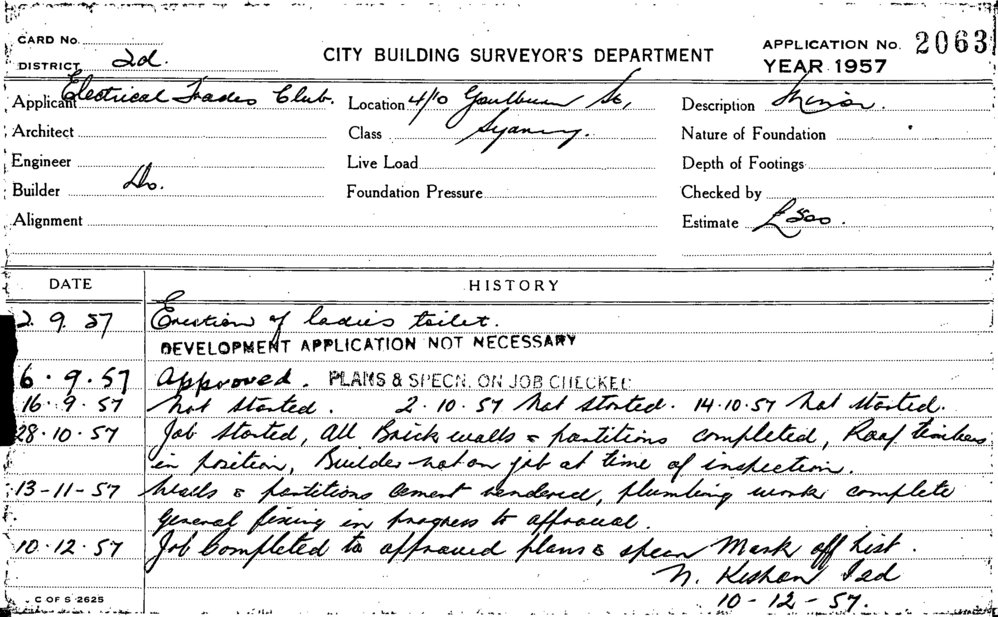 CARD No.
DISTRICT 2d.
CITY BUILDING SURVEYOR'S DEPARTMENT
APPLICATION No. 2063
YEAR 1957
Applicant Electrical Trades Club. Location 4/10 Goulburn St, Description Minor.
Architect Class Sydney. Nature of Foundation
Engineer Live Load Depth of Footings
Builder Do. Foundation Pressure Checked by
Alignment Estimate £500.
DATE HISTORY
2. 9. 57 Erection of ladies toilet.
DEVELOPMENT APPLICATION NOT NECESSARY
6. 9. 57 Approved. PLANS & SPECN. ON JOB CHECKED
16. 9. 57 Not started. 2.10.57 Not started. 14.10.57 Not started.
28.10.57 Job started, all Brick walls & partitions completed, Roof timbers
in position, Builder not on job at time of inspection.
13-11-57 Walls & partitions cement rendered, plumbing work complete
general fixing in progress to approval.
10.12.57 Job Completed to approved plans & specn Mark off List.
N. 
10-12-57.
C OF S 2625